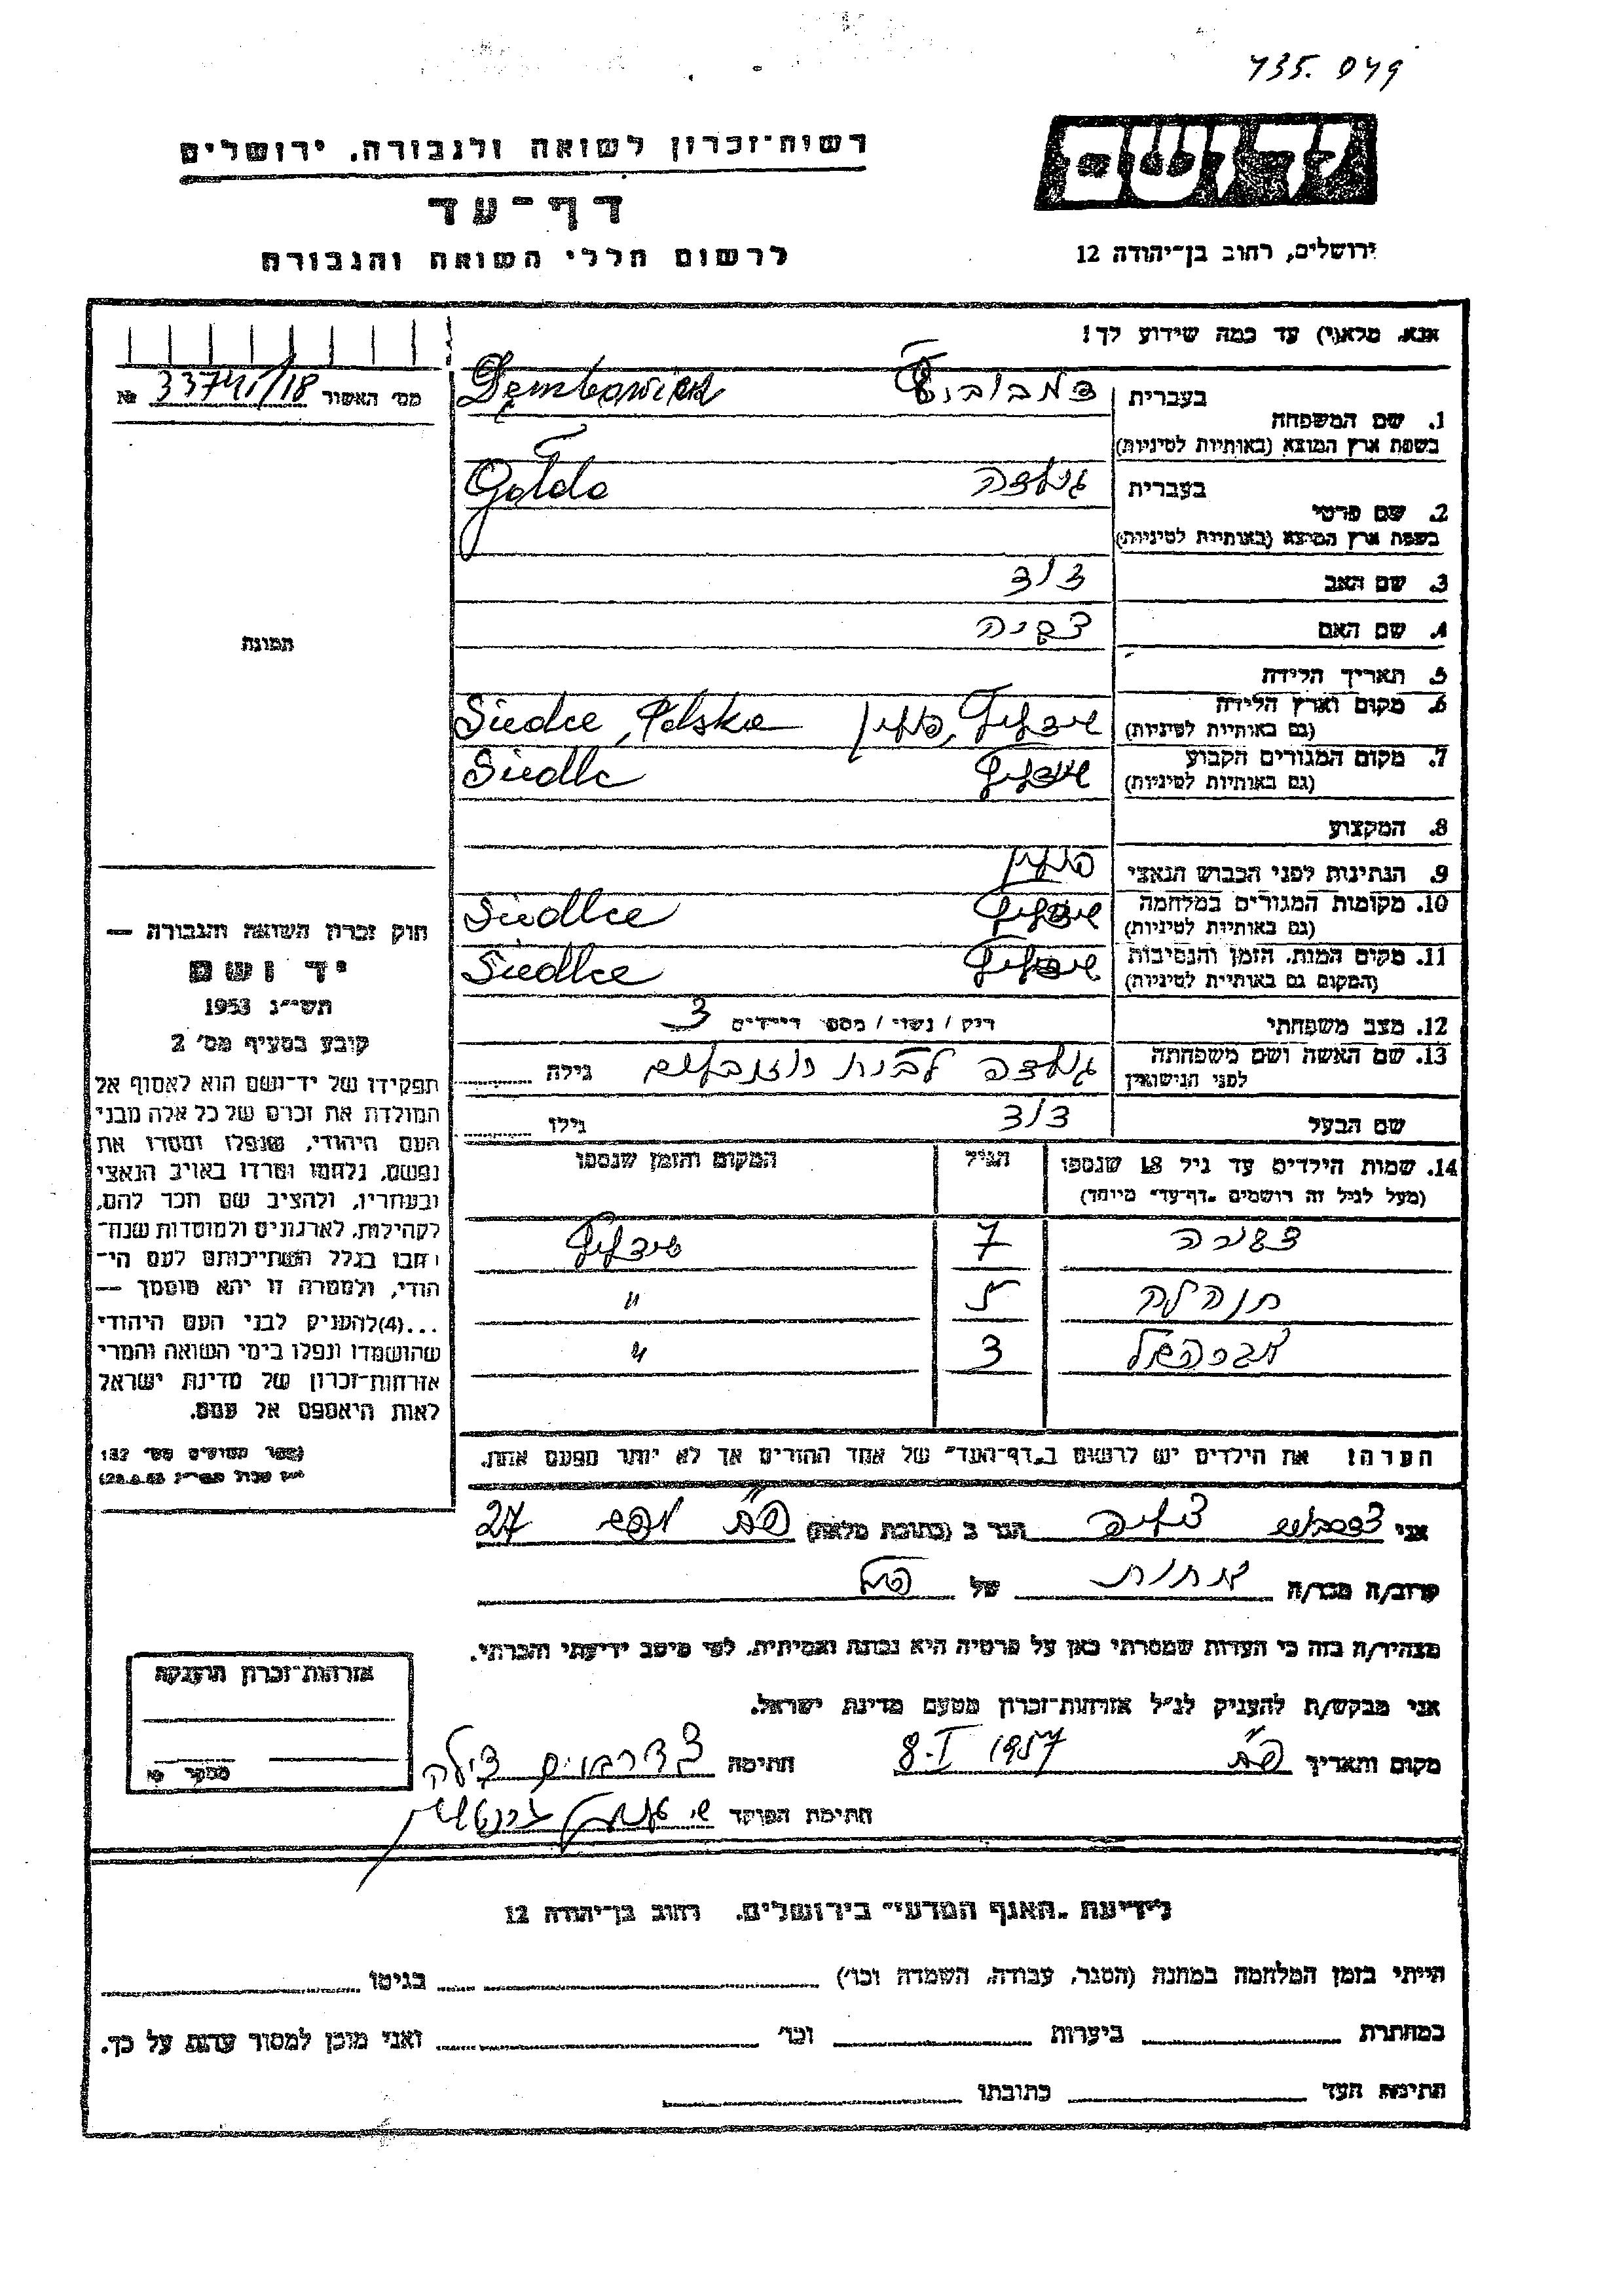 735.049
רשות־זכרון לשואה ולגבורה. ירושלים
דף־עד
לרשום חללי השואה והגבורה
יד ושם
ירושלים, רחוב בן־יהודה 12
אנא, מלא(י) עד כמה שידוע לך!
מס׳ האשור 33741/18 №
1. שם המשפחה
בעברית דמבוביץ
בשפת ארץ המוצא (באותיות לטיניות) Dembowicz
2. שם פרטי
בעברית גולדה
בשפת ארץ המוצא (באותיות לטיניות) Golda
3. שם האב דוד
4. שם האם
5. תאריך הלידה
6. מקום וארץ הלידה שידליץ, פולין Siedce, Polska
(גם באותיות לטיניות)
7. מקום המגורים הקבוע שידליץ Siedlc
(גם באותיות לטיניות)
8. המקצוע
9. הנתינות לפני הכבוש הנאצי פולין
10. מקומות המגורים במלחמה שידליץ Siedlce
(גם באותיות לטיניות)
11. מקום המות, הזמן והנסיבות שידליץ Siedlce
(המקום גם באותיות לטיניות)
12. מצב משפחתי רוק / נשוי / מספר הילדים 3
13. שם האשה ושם משפחתה גולדה לבית רוזנבלום גילה
לפני הנישואין
שם הבעל דוד גילו
14. שמות הילדים עד גיל 18 שנספו הגיל המקום והזמן שנספו
(מעל לגיל זה רושמים "דף־עד" מיוחד)
7 שידליץ
5 "
3 "
הערה: את הילדים יש לרשום ב"דף־העד" של אחד ההורים אך לא יותר מפעם אחת.
תמונה
חוק זכרון השואה והגבורה —
יד ושם
תשי״ג 1953
קובע בסעיף מס׳ 2
תפקידו של יד־ושם הוא לאסוף אל
המולדת את זכרם של כל אלה מבני
העם היהודי, שנפלו ומסרו את
נפשם, נלחמו ומרדו באויב הנאצי
ובעוזריו, ולהציב שם וזכר להם,
לקהילות, לארגונים ולמוסדות שנח־
רבו בגלל השתייכותם לעם הי־
הודי, ולמטרה זו יהא מוסמך —
...(4)להעניק לבני העם היהודי
שהושמדו ונפלו בימי השואה והמרי
אזרחות־זכרון של מדינת ישראל
לאות היאספם אל עמם.
(ספר החוקים מס׳ 132
אני צילה הגר ב (כתובת מלאה) 27
קרוב/ה מכר/ה אחות של
מצהיר/ה בזה כי העדות שמסרתי כאן על פרטיה היא נכונה ואמיתית, לפי מיטב ידיעתי והכרתי.
אני מבקש/ת להעניק לנ״ל אזרחות־זכרון מטעם מדינת ישראל.
מקום ותאריך 8.I 1957 חתימה צילה
חתימת הפוקד
אזרחות־זכרון הוענקה
מספר
לידיעת "האגף המדעי" בירושלים. רחוב בן־יהודה 12
הייתי בזמן המלחמה במחנה (הסגר, עבודה, השמדה וכו׳) בגיטו
במחתרת ביערות וכו׳ ואני מוכן למסור עדות על כך.
חתימת העד כתובתו